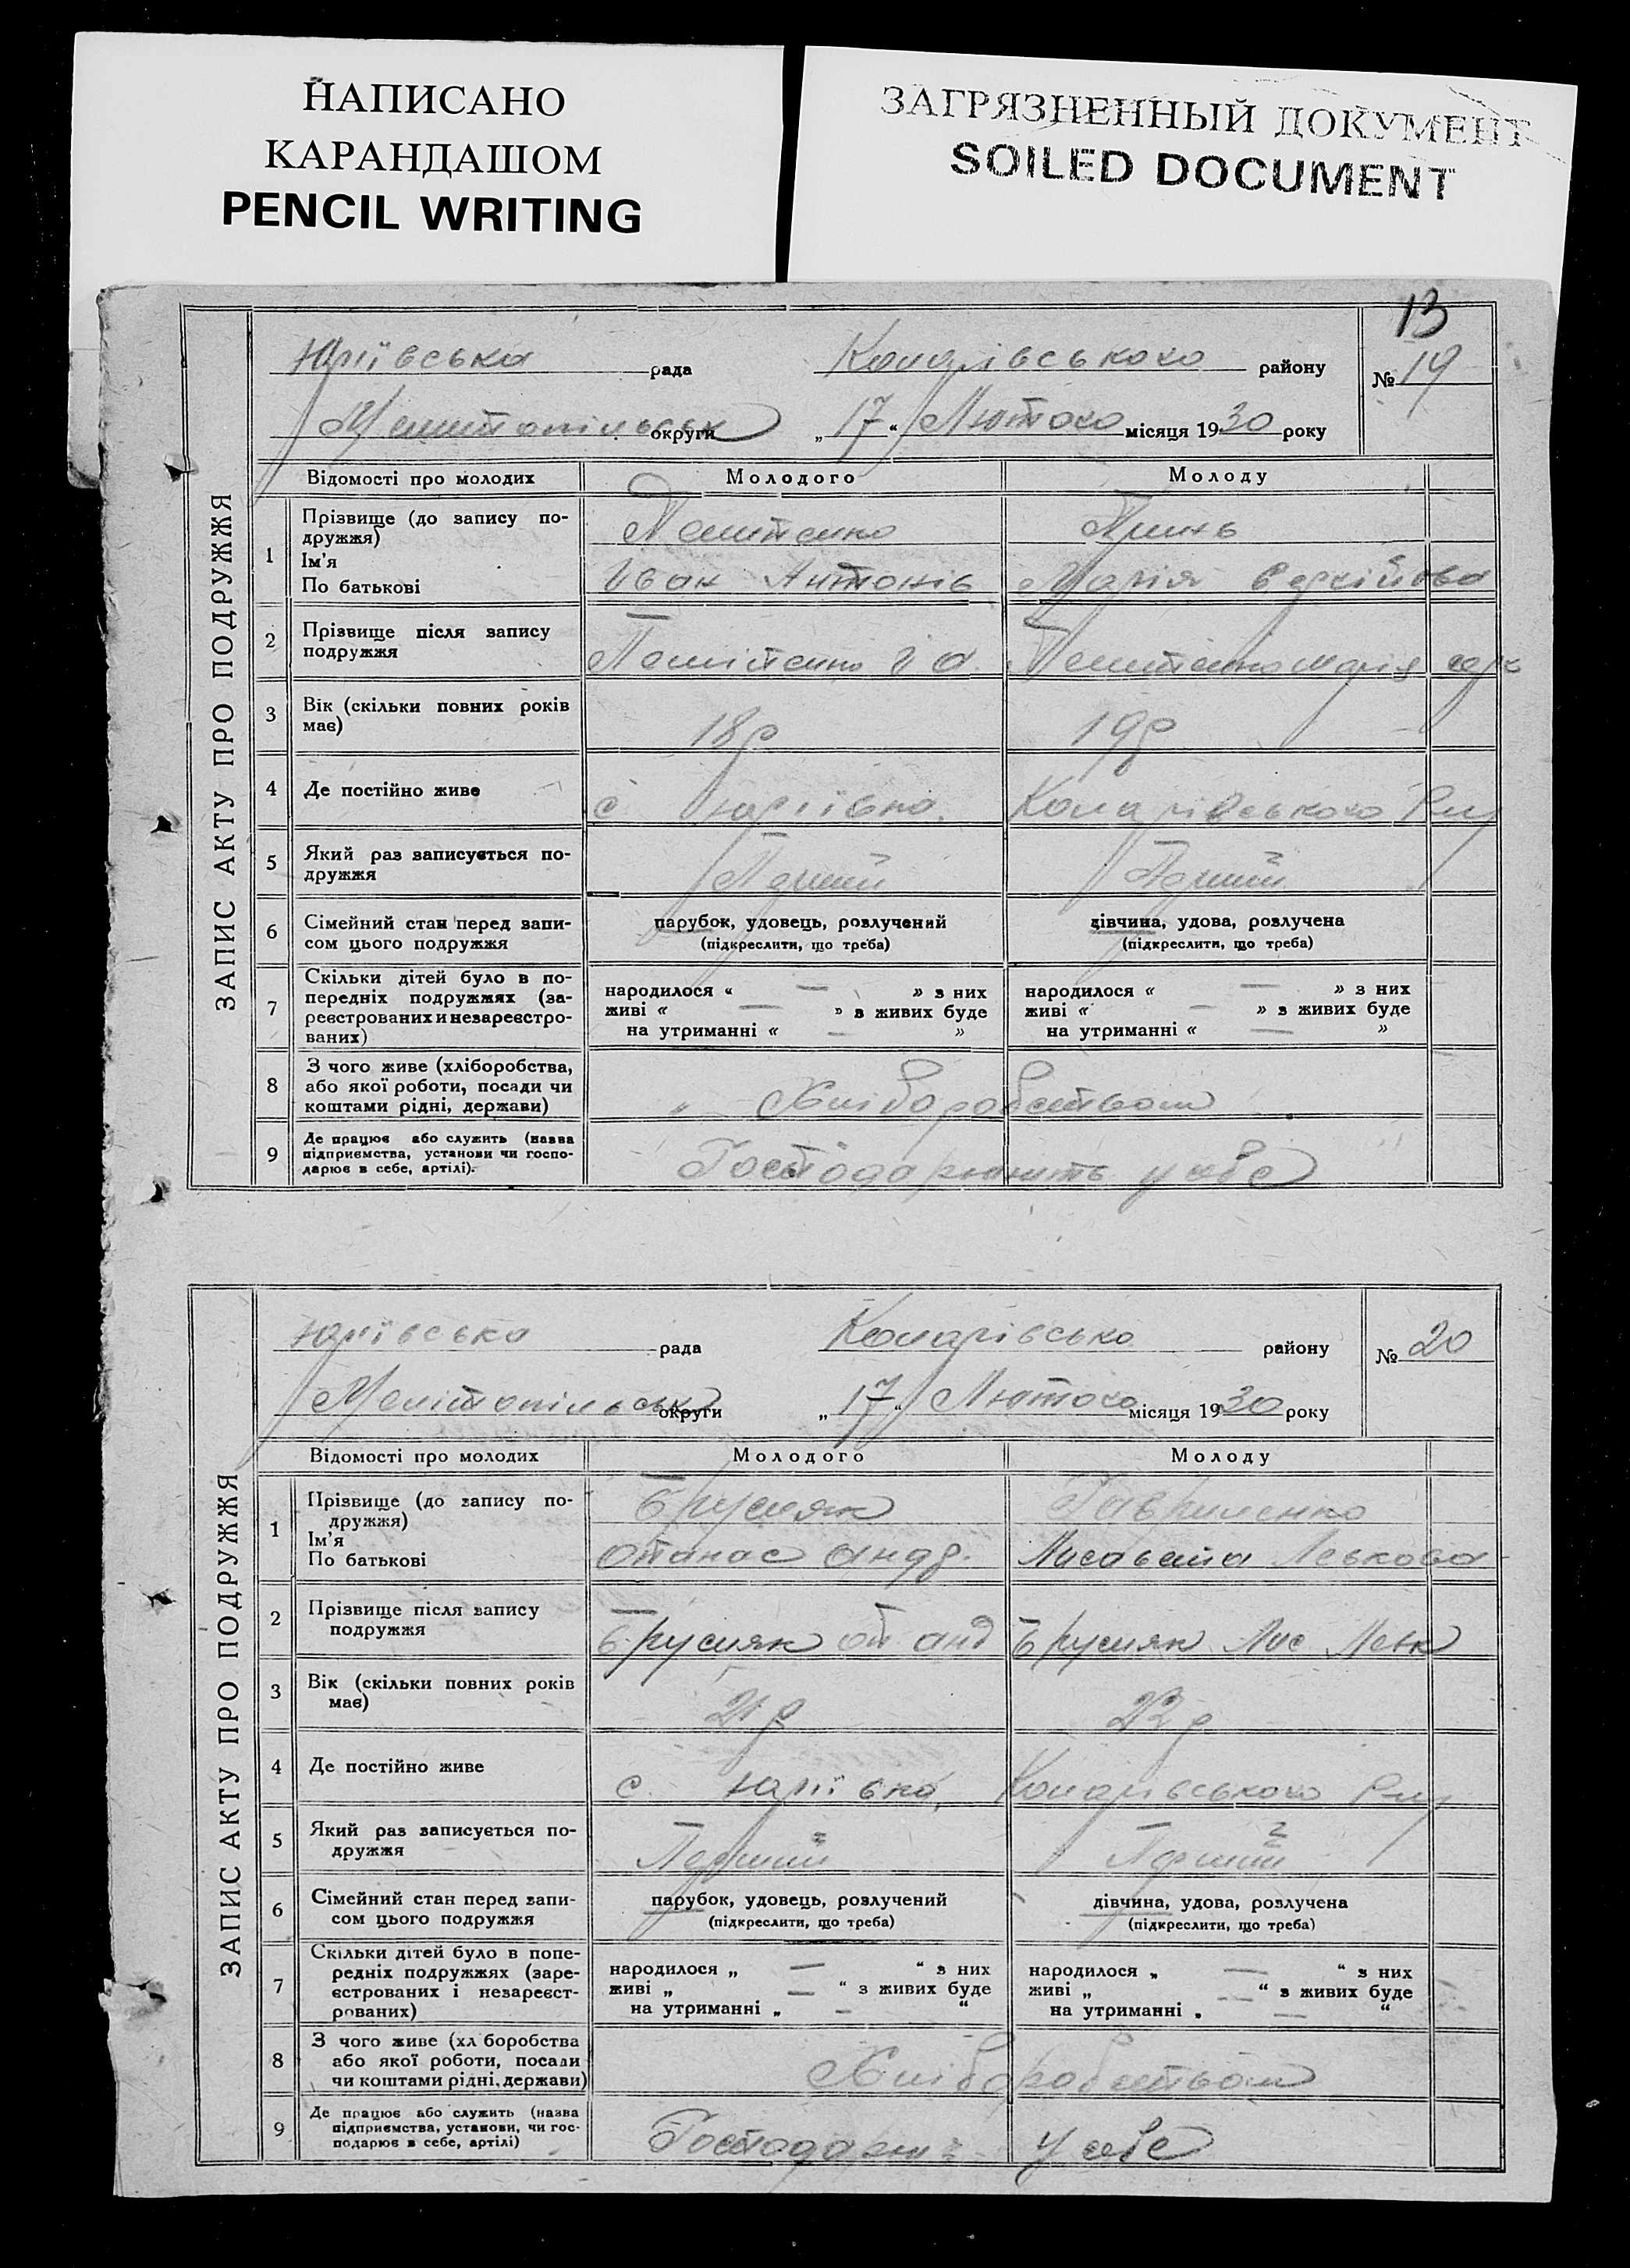 НАПИСАНО
КАРАНДАШОМ
PENCIL WRITING
ЗАГРЯЗНЕННЫЙ ДОКУМЕНТ
SOILED DOCUMENT
13
ЗАПИС АКТУ ПРО ПОДРУЖЖЯ
Юріївська рада району
№ 19
округи „17“ Лютого місяця 1930 року
Відомості про молодих Молодого Молоду
1 Прізвище (до запису по-
дружжя)
Ім'я
По батькові
Іван Антонів Марія
2 Прізвище після запису
подружжя
3 Вік (скільки повних років
має)
18р 19р
4 Де постійно живе
с Юріївка
5 Який раз записується по-
дружжя
Перший Перший
6 Сімейний стан перед запи-
сом цього подружжя
парубок, удовець, розлучений
(підкреслити, що треба)
дівчина, удова, розлучена
(підкреслити, що треба)
7 Скільки дітей було в по-
передніх подружжях (за-
реєстрованих и незареєстро-
ваних)
народилося « — » з них
живі « — » з живих буде
на утриманні « — »
народилося « — » з них
живі « — » з живих буде
на утриманні « — »
8 З чого живе (хліборобства,
або якої роботи, посади чи
коштами рідні, держави)
Хліборобством
9 Де працює або служить (назва
підприємства, установи чи госпо-
дарює в себе, артілі).
у себе
ЗАПИС АКТУ ПРО ПОДРУЖЖЯ
Юріївська рада району
№ 20
округи „17“ Лютого місяця 1930 року
Відомості про молодих Молодого Молоду
1 Прізвище (до запису по-
дружжя)
Ім'я
По батькові
Брусляк Гавриленко
Опанас Лисавета Левкова
2 Прізвище після запису
подружжя
Брусляк Оп. Анд Брусляк Лис Левк
3 Вік (скільки повних років
має)
21р 22р
4 Де постійно живе
с. Юріївка,
5 Який раз записується по-
дружжя
Перший Перший
6 Сімейний стан перед запи-
сом цього подружжя
парубок, удовець, розлучений
(підкреслити, що треба)
дівчина, удова, розлучена
(підкреслити, що треба)
7 Скільки дітей було в попе-
редніх подружжях (заре-
єстрованих і незареєст-
рованих)
народилося „ — “ з них
живі „ — “ з живих буде
на утриманні „ — “
народилося „ — “ з них
живі „ — “ з живих буде
на утриманні „ — “
8 З чого живе (хл боробства
або якої роботи, посади
чи коштами рідні, держави)
Хліборобством
9 Де працює або служить (назва
підприємства, установи, чи гос-
подарює в себе, артілі)
у себе